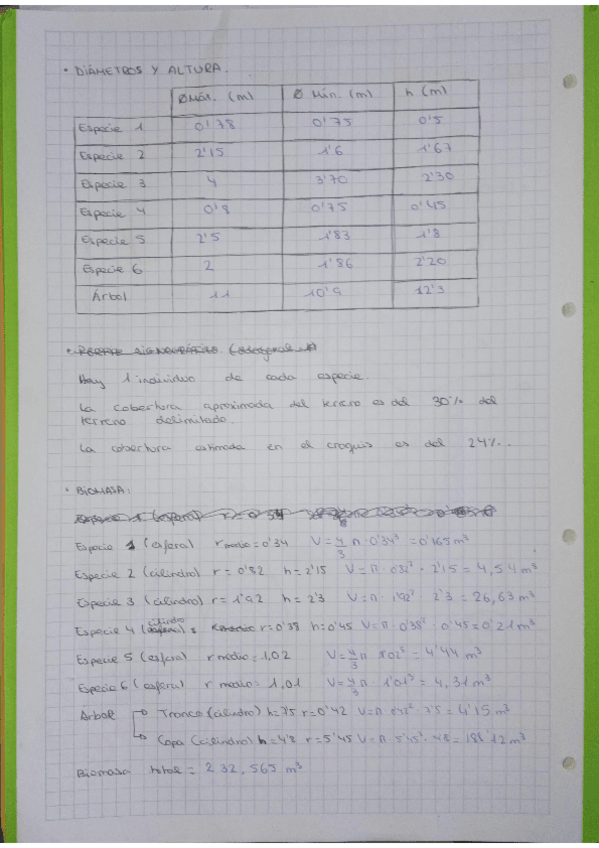 • DIÁMETROS Y ALTURA.
Ø Máx. (m) Ø Mín. (m) h (m)
Especie 1 0'78 0'75 0'5
Especie 2 2'15 1'6 1'67
Especie 3 4 3'70 2'30
Especie 4 0'8 0'75 0'45
Especie 5 2'5 1'83 1'8
Especie 6 2 1'86 2'20
Árbol 11 10'9 12'3
Hay 1 individuo de cada especie.
La cobertura aproximada del terreno es del 30% del
terreno delimitado.
La cobertura estimada en el croquis es del 24%.
• BIOMASA:
Especie 1 (esfera) r medio = 0'34 V = 4/3 π · 0'34³ = 0'165 m³
Especie 2 (cilindro) r = 0'82 h = 2'15 V = π · 0'82² · 2'15 = 4,54 m³
Especie 3 (cilindro) r = 1'92 h = 2'3 V = π · 1'92² · 2'3 = 26,63 m³
Especie 4 (cilindro) r = 0'38 h = 0'45 V = π · 0'38² · 0'45 = 0'21 m³
Especie 5 (esfera) r medio = 1,02 V = 4/3 π 1'02³ = 4'44 m³
Especie 6 (esfera) r medio = 1,01 V = 4/3 π · 1'01³ = 4,31 m³
Árbol Tronco (cilindro) h = 7'5 r = 0'42 V = π · 0'42² · 7'5 = 4'15 m³
Copa (cilindro) h = 4'8 r = 5'45 V = π · 5'45² · 4'8 = 188'12 m³
Biomasa total = 232,565 m³